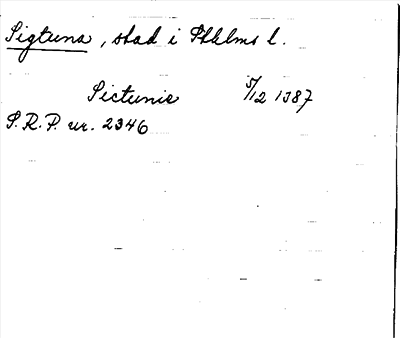 Sigtuna, stad i Sthlms l.
Sictunie 5/12 1387
S.R.P. nr. 2346